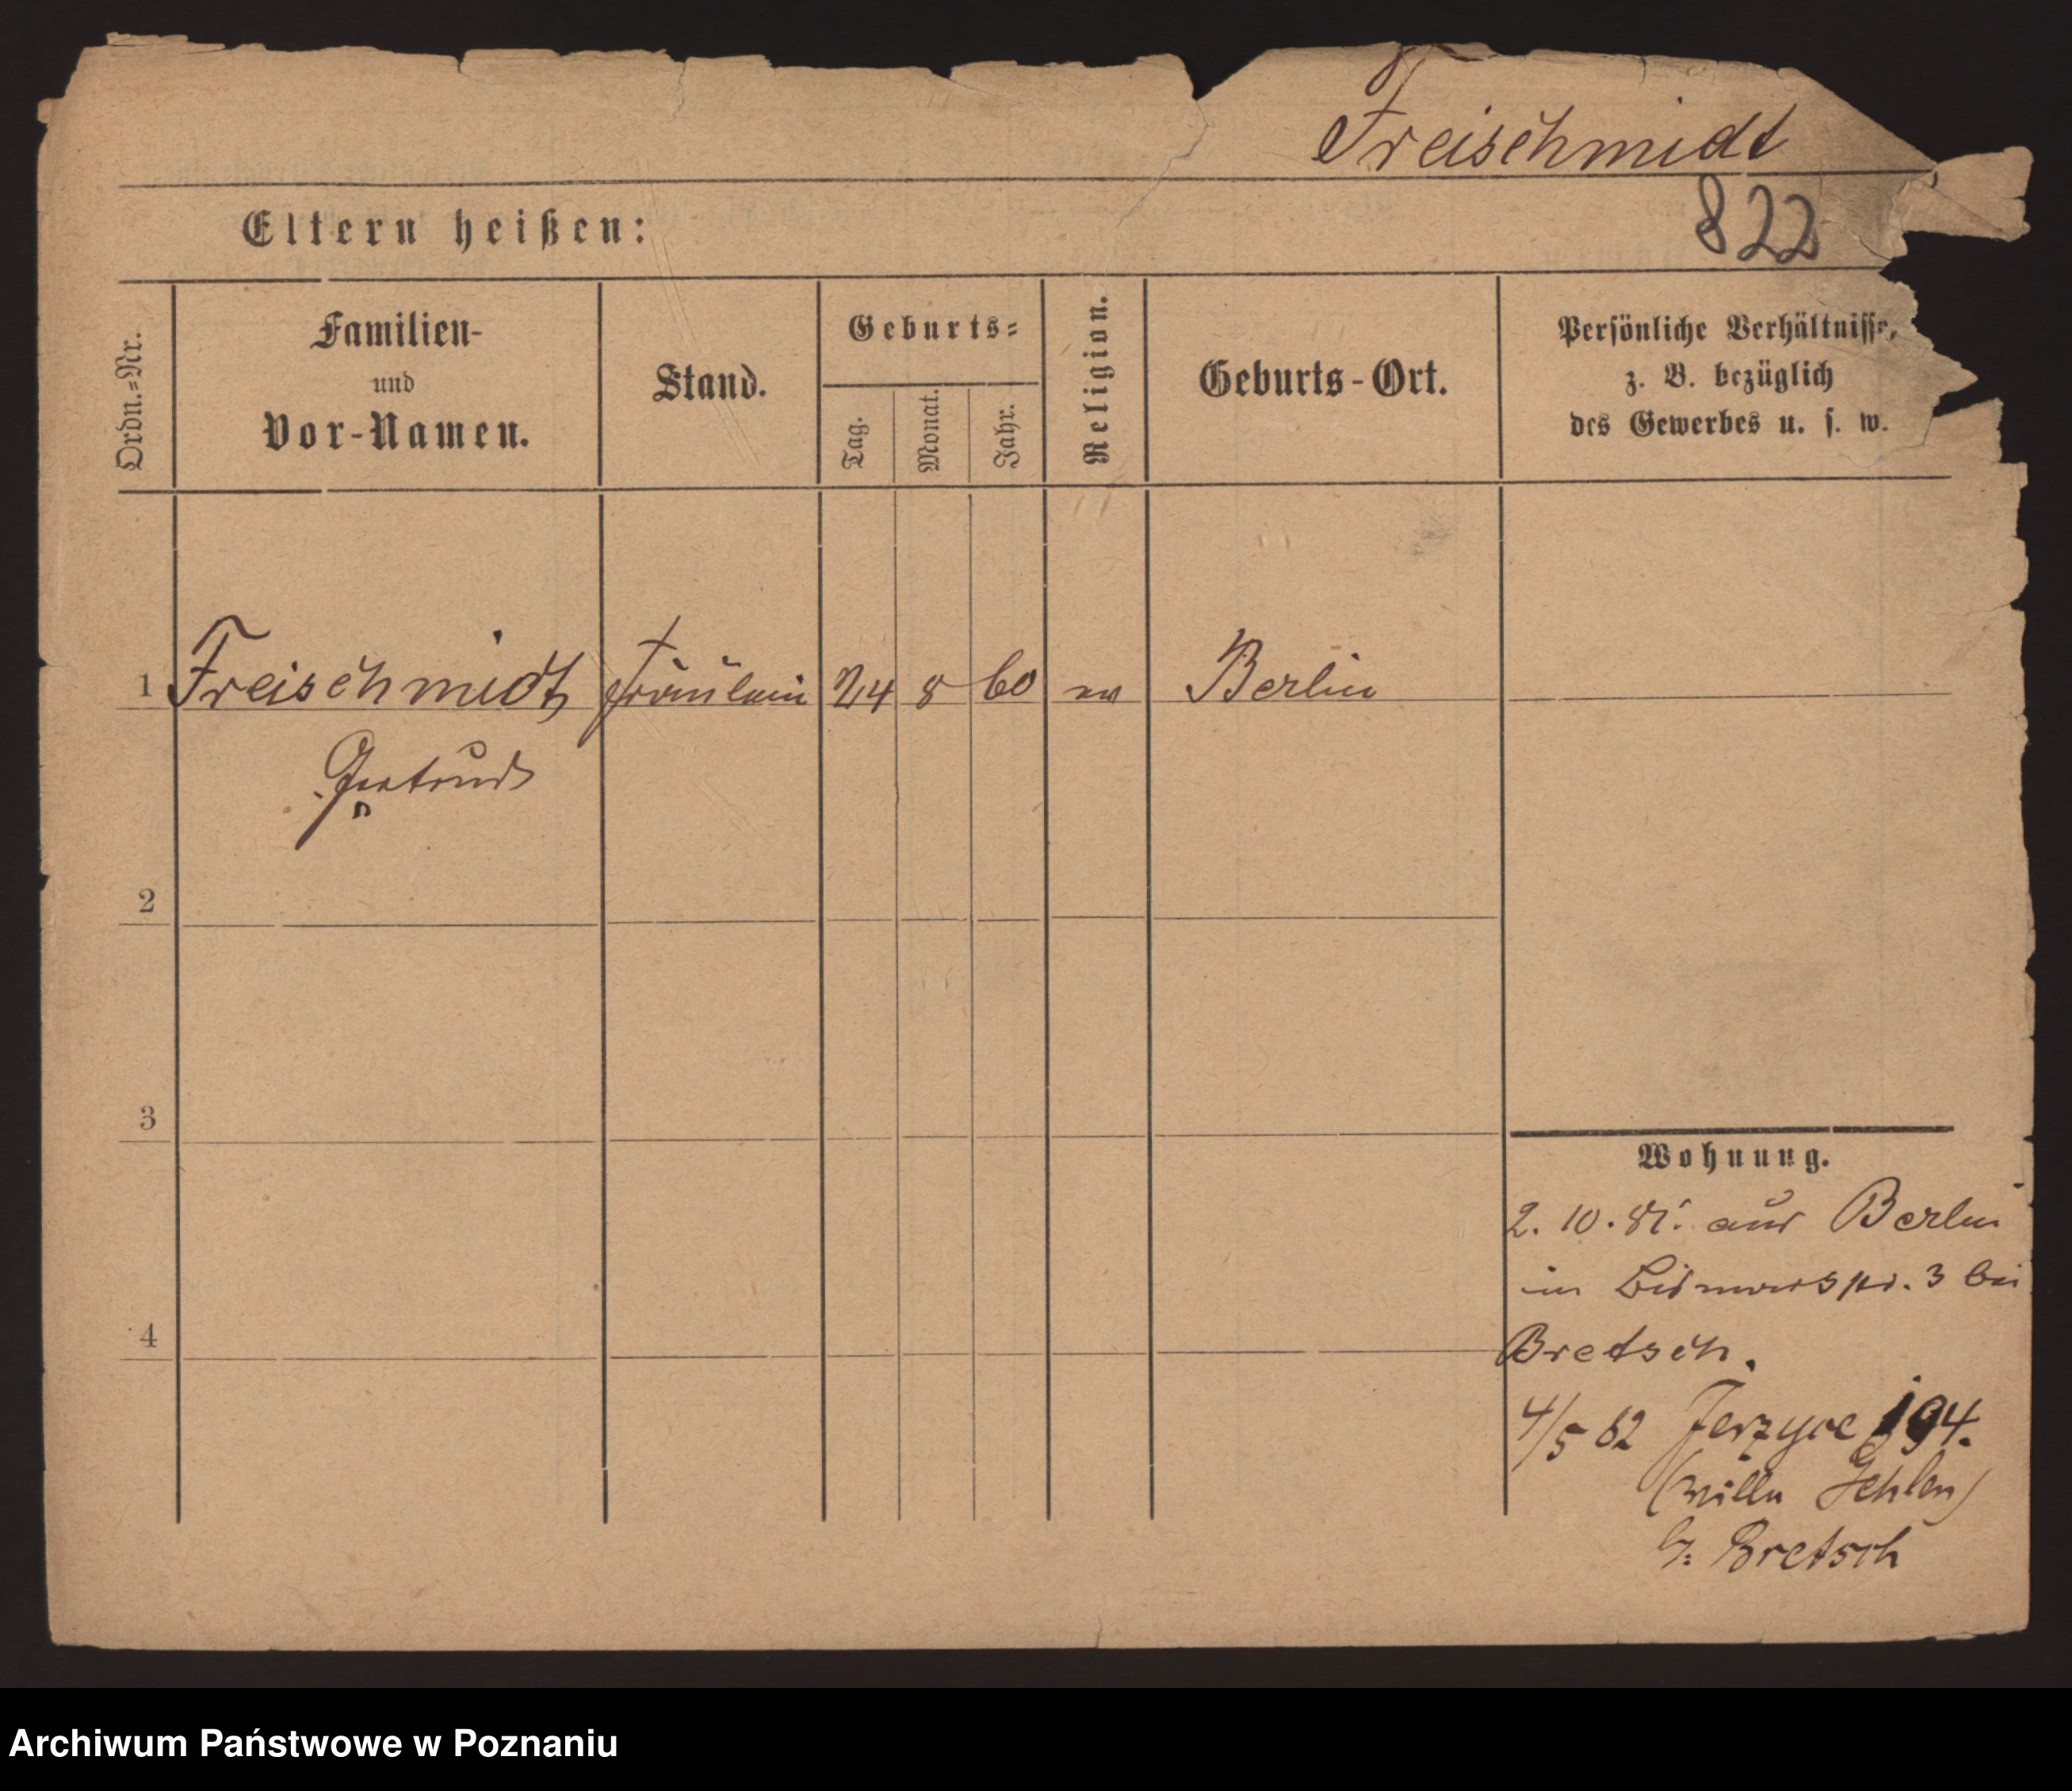 Freischmidt
822
Eltern heißen:
Ordn.=Nr.
Familien-
und
Vor-Namen.
Stand.
Geburts=
Tag.
Monat.
Jahr.
Religion.
Geburts-Ort.
Persönliche Verhältnisse,
z. B. bezüglich
des Gewerbes u. s. w.
1 Freischmidt Fräulein 24 8 60 ev Berlin
Gertrud
2
3
Wohnung.
2. 10. 81. aus Berlin
in 3 bei
4
Bretsch.
4/5 82 Jerzyce 194.
(Villa Gehlen)
b. Bretsch
Archiwum Państwowe w Poznaniu